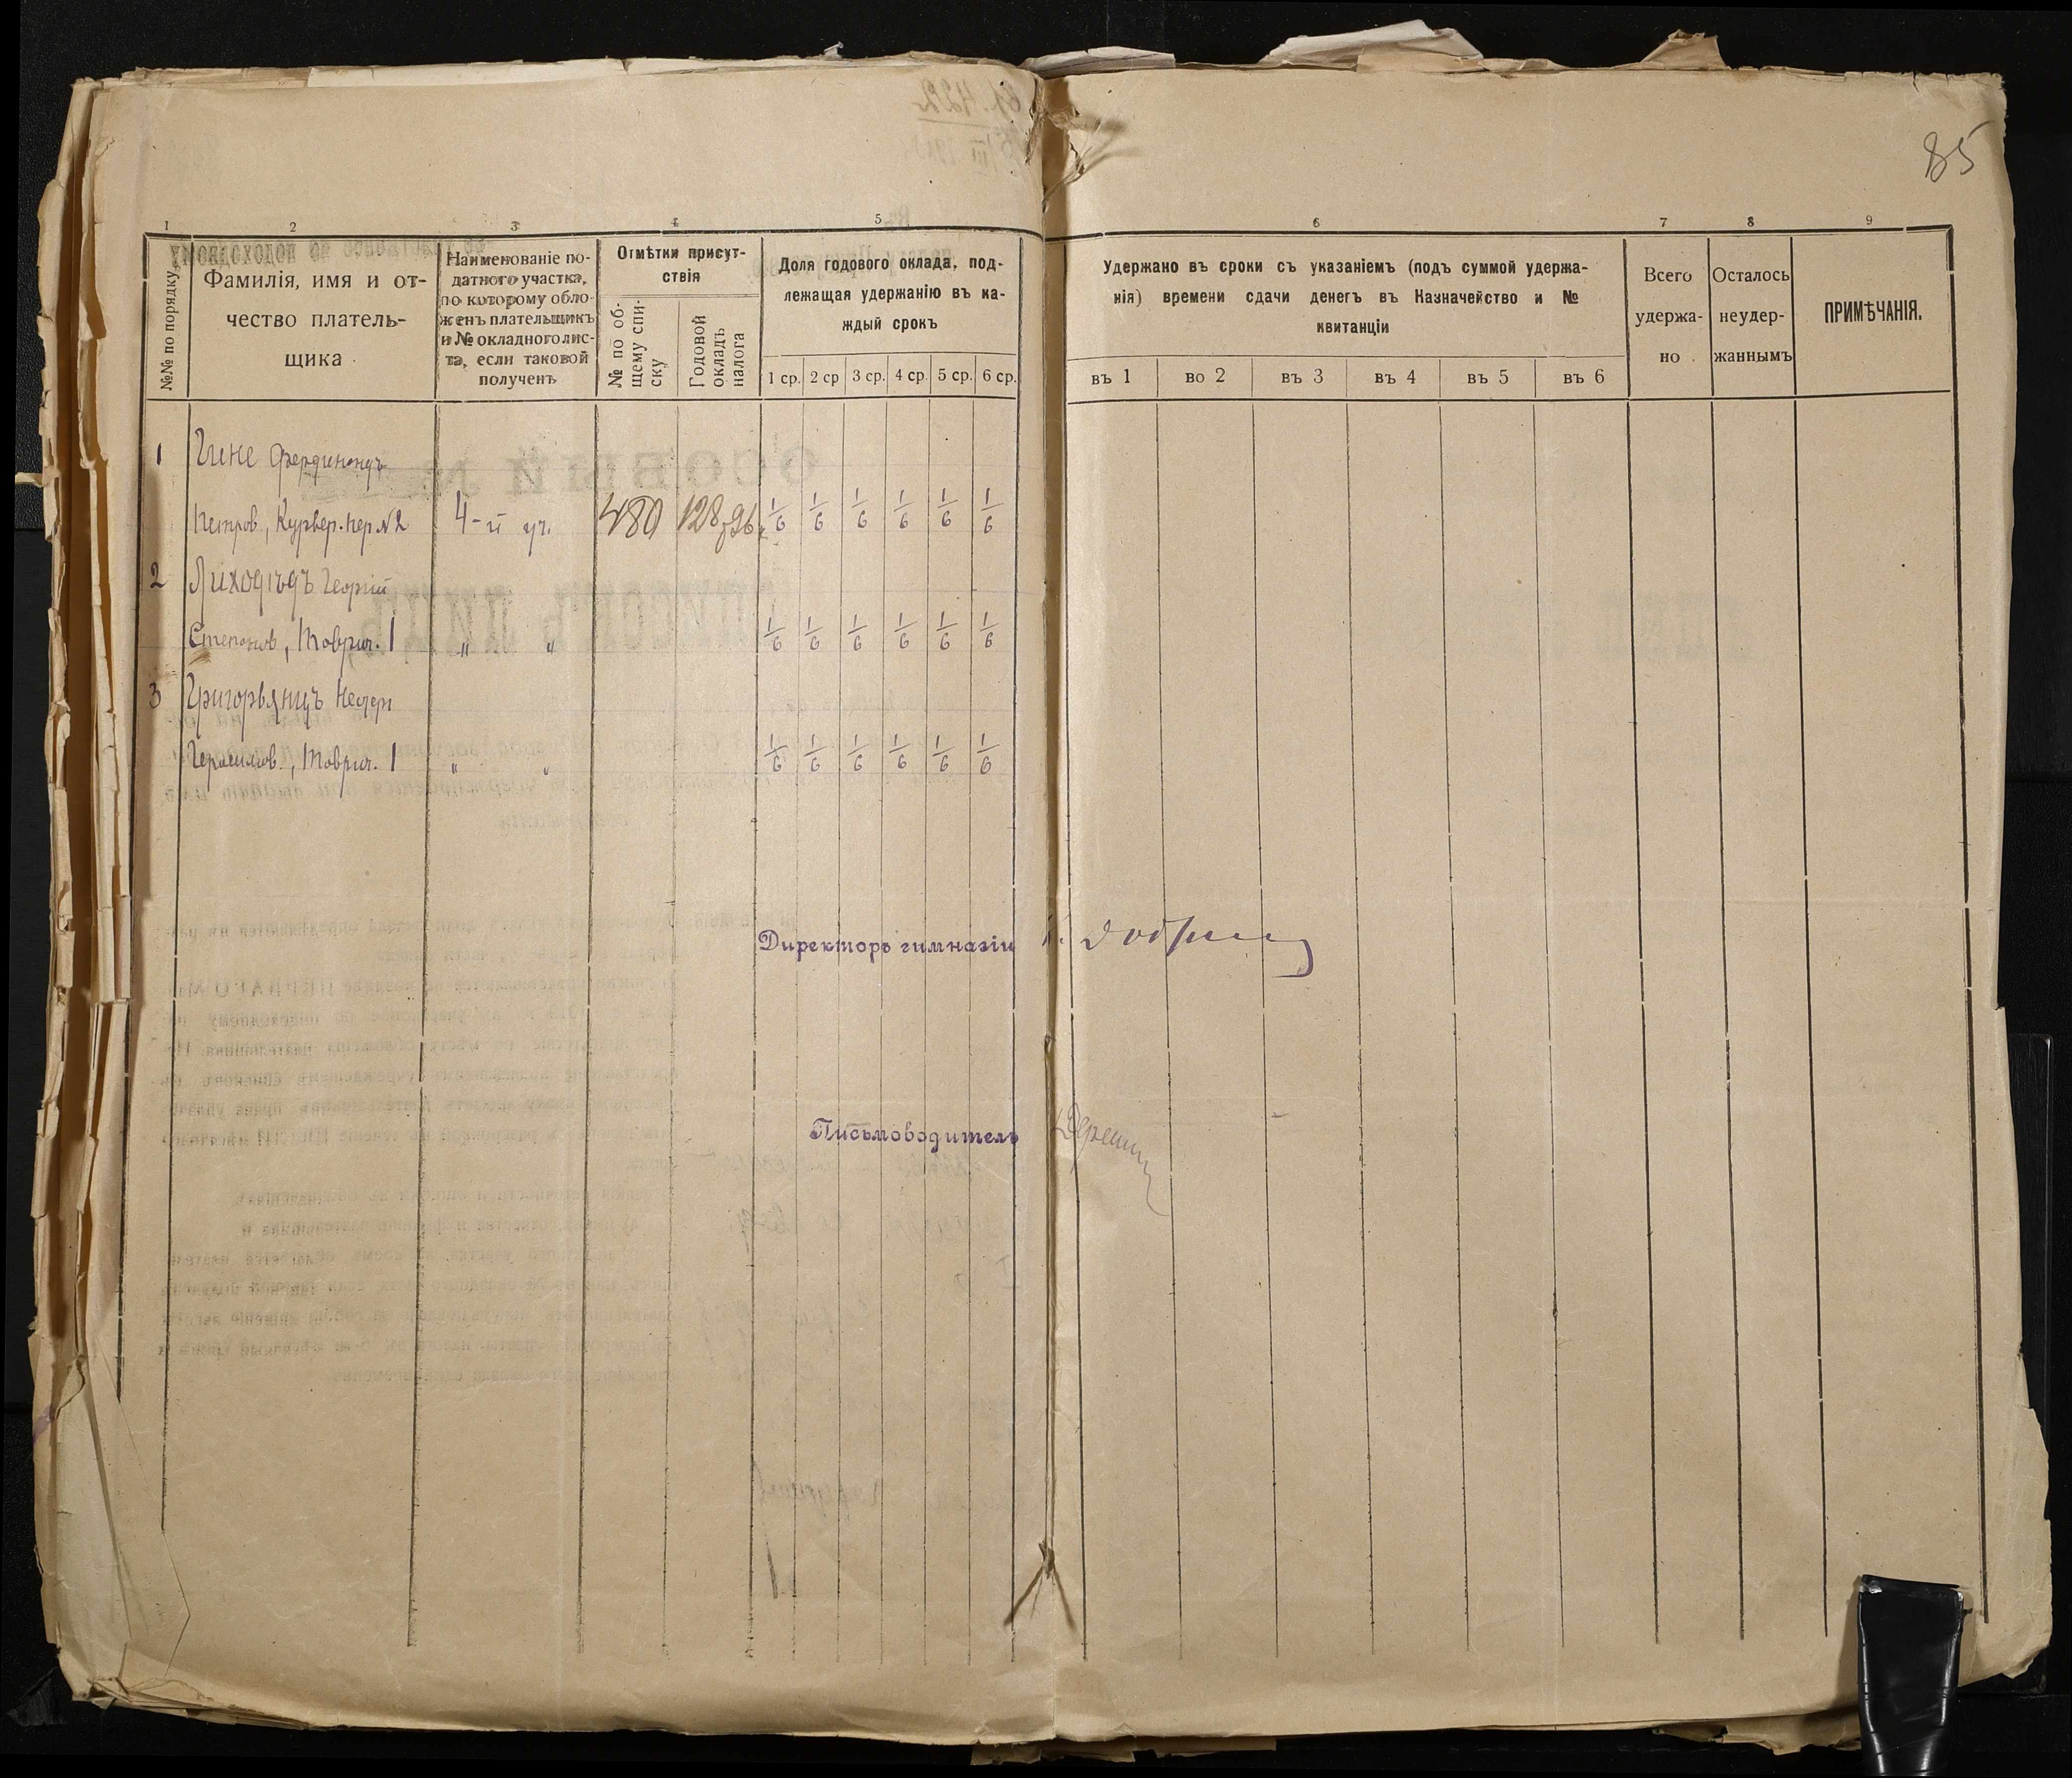 85
1 2 3 4 5 6 7 8 9
№№ по порядку
Фамилія, имя и от-
чество платель-
щика
Наименованіе по-
датного участка,
по которому обло-
женъ плательщикъ
и № окладного лис-
та, если таковой
полученъ
Отмѣтки присут-
ствія
№ по об-
щему спи-
ску
Годовой
окладъ
налога
Доля годового оклада, под-
лежащая удержанію въ ка-
ждый срокъ
1 ср. 2 ср 3 ср. 4 ср. 5 ср. 6 ср.
Удержано въ сроки съ указаніемъ (подъ суммой удержа-
нія) времени сдачи денегъ въ Казначейство и №
квитанціи
въ 1 во 2 въ 3 въ 4 въ 5 въ 6
Всего
удержа-
но
Осталось
неудер-
жаннымъ
ПРИМѢЧАНІЯ.
1 Гине Фердинандъ
Петров., 4-й уч. 480 1/6 1/6 1/6 1/6 1/6 1/6
2 Лиходѣдъ Георгій
Степанов., Таврич. 1 " " 1/6 1/6 1/6 1/6 1/6 1/6
3 Григорьянцъ
Герасимов., Таврич. 1 " " 1/6 1/6 1/6 1/6 1/6 1/6
Директоръ гимназіи
Письмоводитель